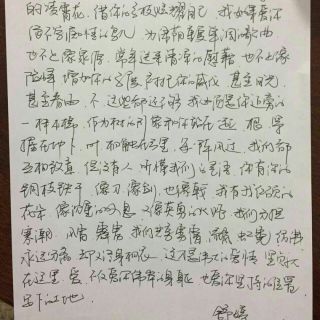 的凌霄花，借你的高枝炫耀自己，我如果爱你
绝不学痴情的鸟儿，为绿荫重复单调的歌曲
也不止像泉源，常年送来清凉的慰藉，也不止像
险峰，增加你的高度，衬托你的威仪，甚至日光，
甚至春雨，不，这些都还不够，我必须是你近旁的
一株木棉，作为树的形象和你站在一起，根，紧
握在地下，叶，相触在云里，每一阵风过，我们都
互相致意，但没有人，听懂我们的言语，你有你的
铜枝铁干，像刀，像剑，也像戟，我有我红硕的
花朵，像沉重的叹息，又像英勇的火炬，我们分担
寒潮、风雷、霹雳，我们共享雾霭、流岚、虹霓，仿佛
永远分离，却又终身相依，这才是伟大的爱情，坚贞就
在这里，爱，不仅爱你伟岸的身躯，也爱你坚持的位置，
足下的土地
舒婷